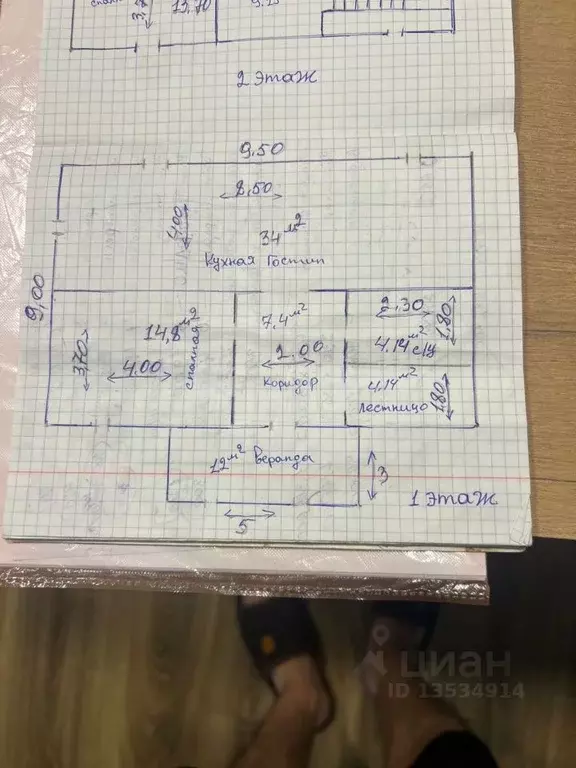 13,70
9.25
2 этаж
9,50
8,50
4,00
34 м²
Кухная Гостин
9,00
14,8 м²
спалная
3,70
4.00
7,4 м²
2.00
коридор
2,30
1,80
4.14 м²
с/ц
4,14 м²
1,80
лестницо
12 м² Веранды
3
5
1 этаж
циан
ID 13534914